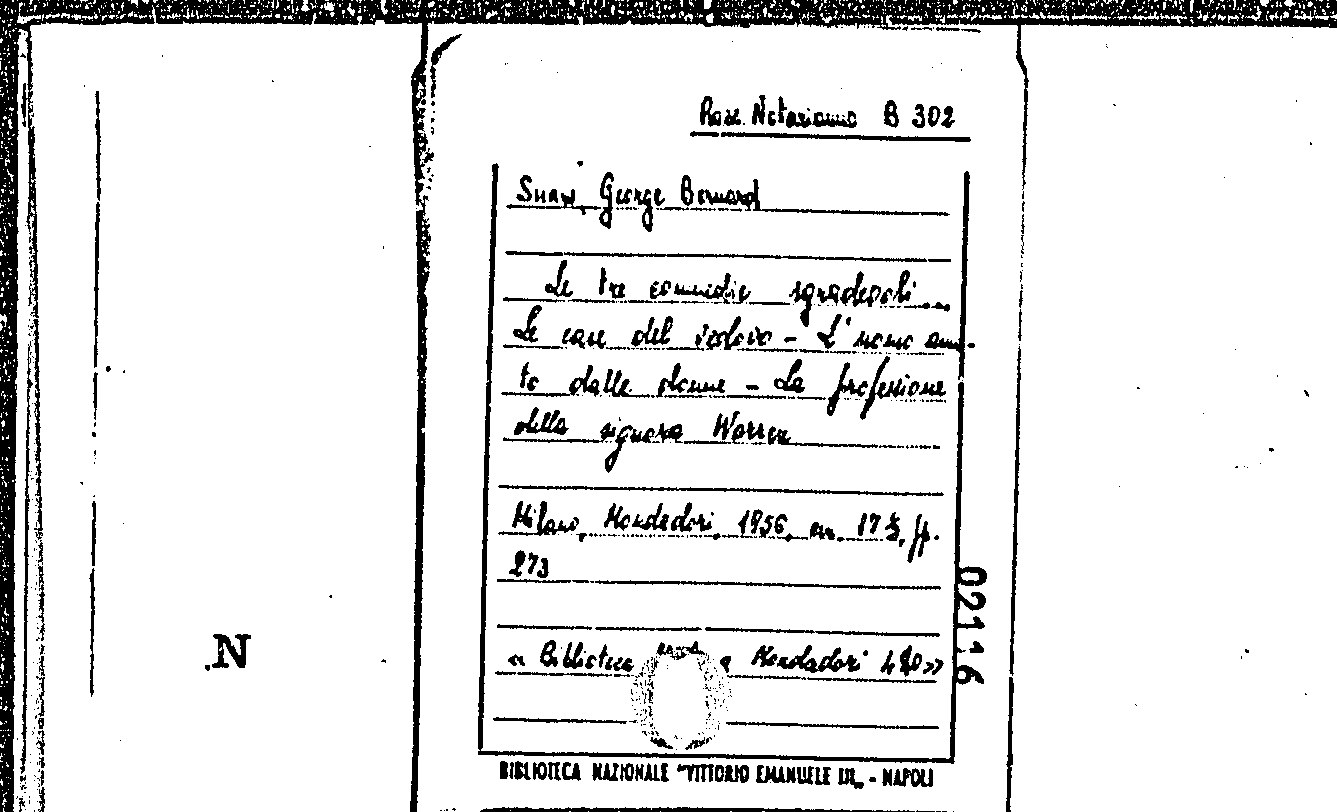 Racc. Notarianni B 302
Shaw, George Bernard
Le tre commedie sgradevoli...
Le case del vedovo - L'uomo ama-
to dalle donne - La professione
della signora Warren
Milano, Mondadori, 1956, cm. 17½, pp.
273
02116
N
« Biblioteca Mondadori »
BIBLIOTECA NAZIONALE "VITTORIO EMANUELE III„ - NAPOLI